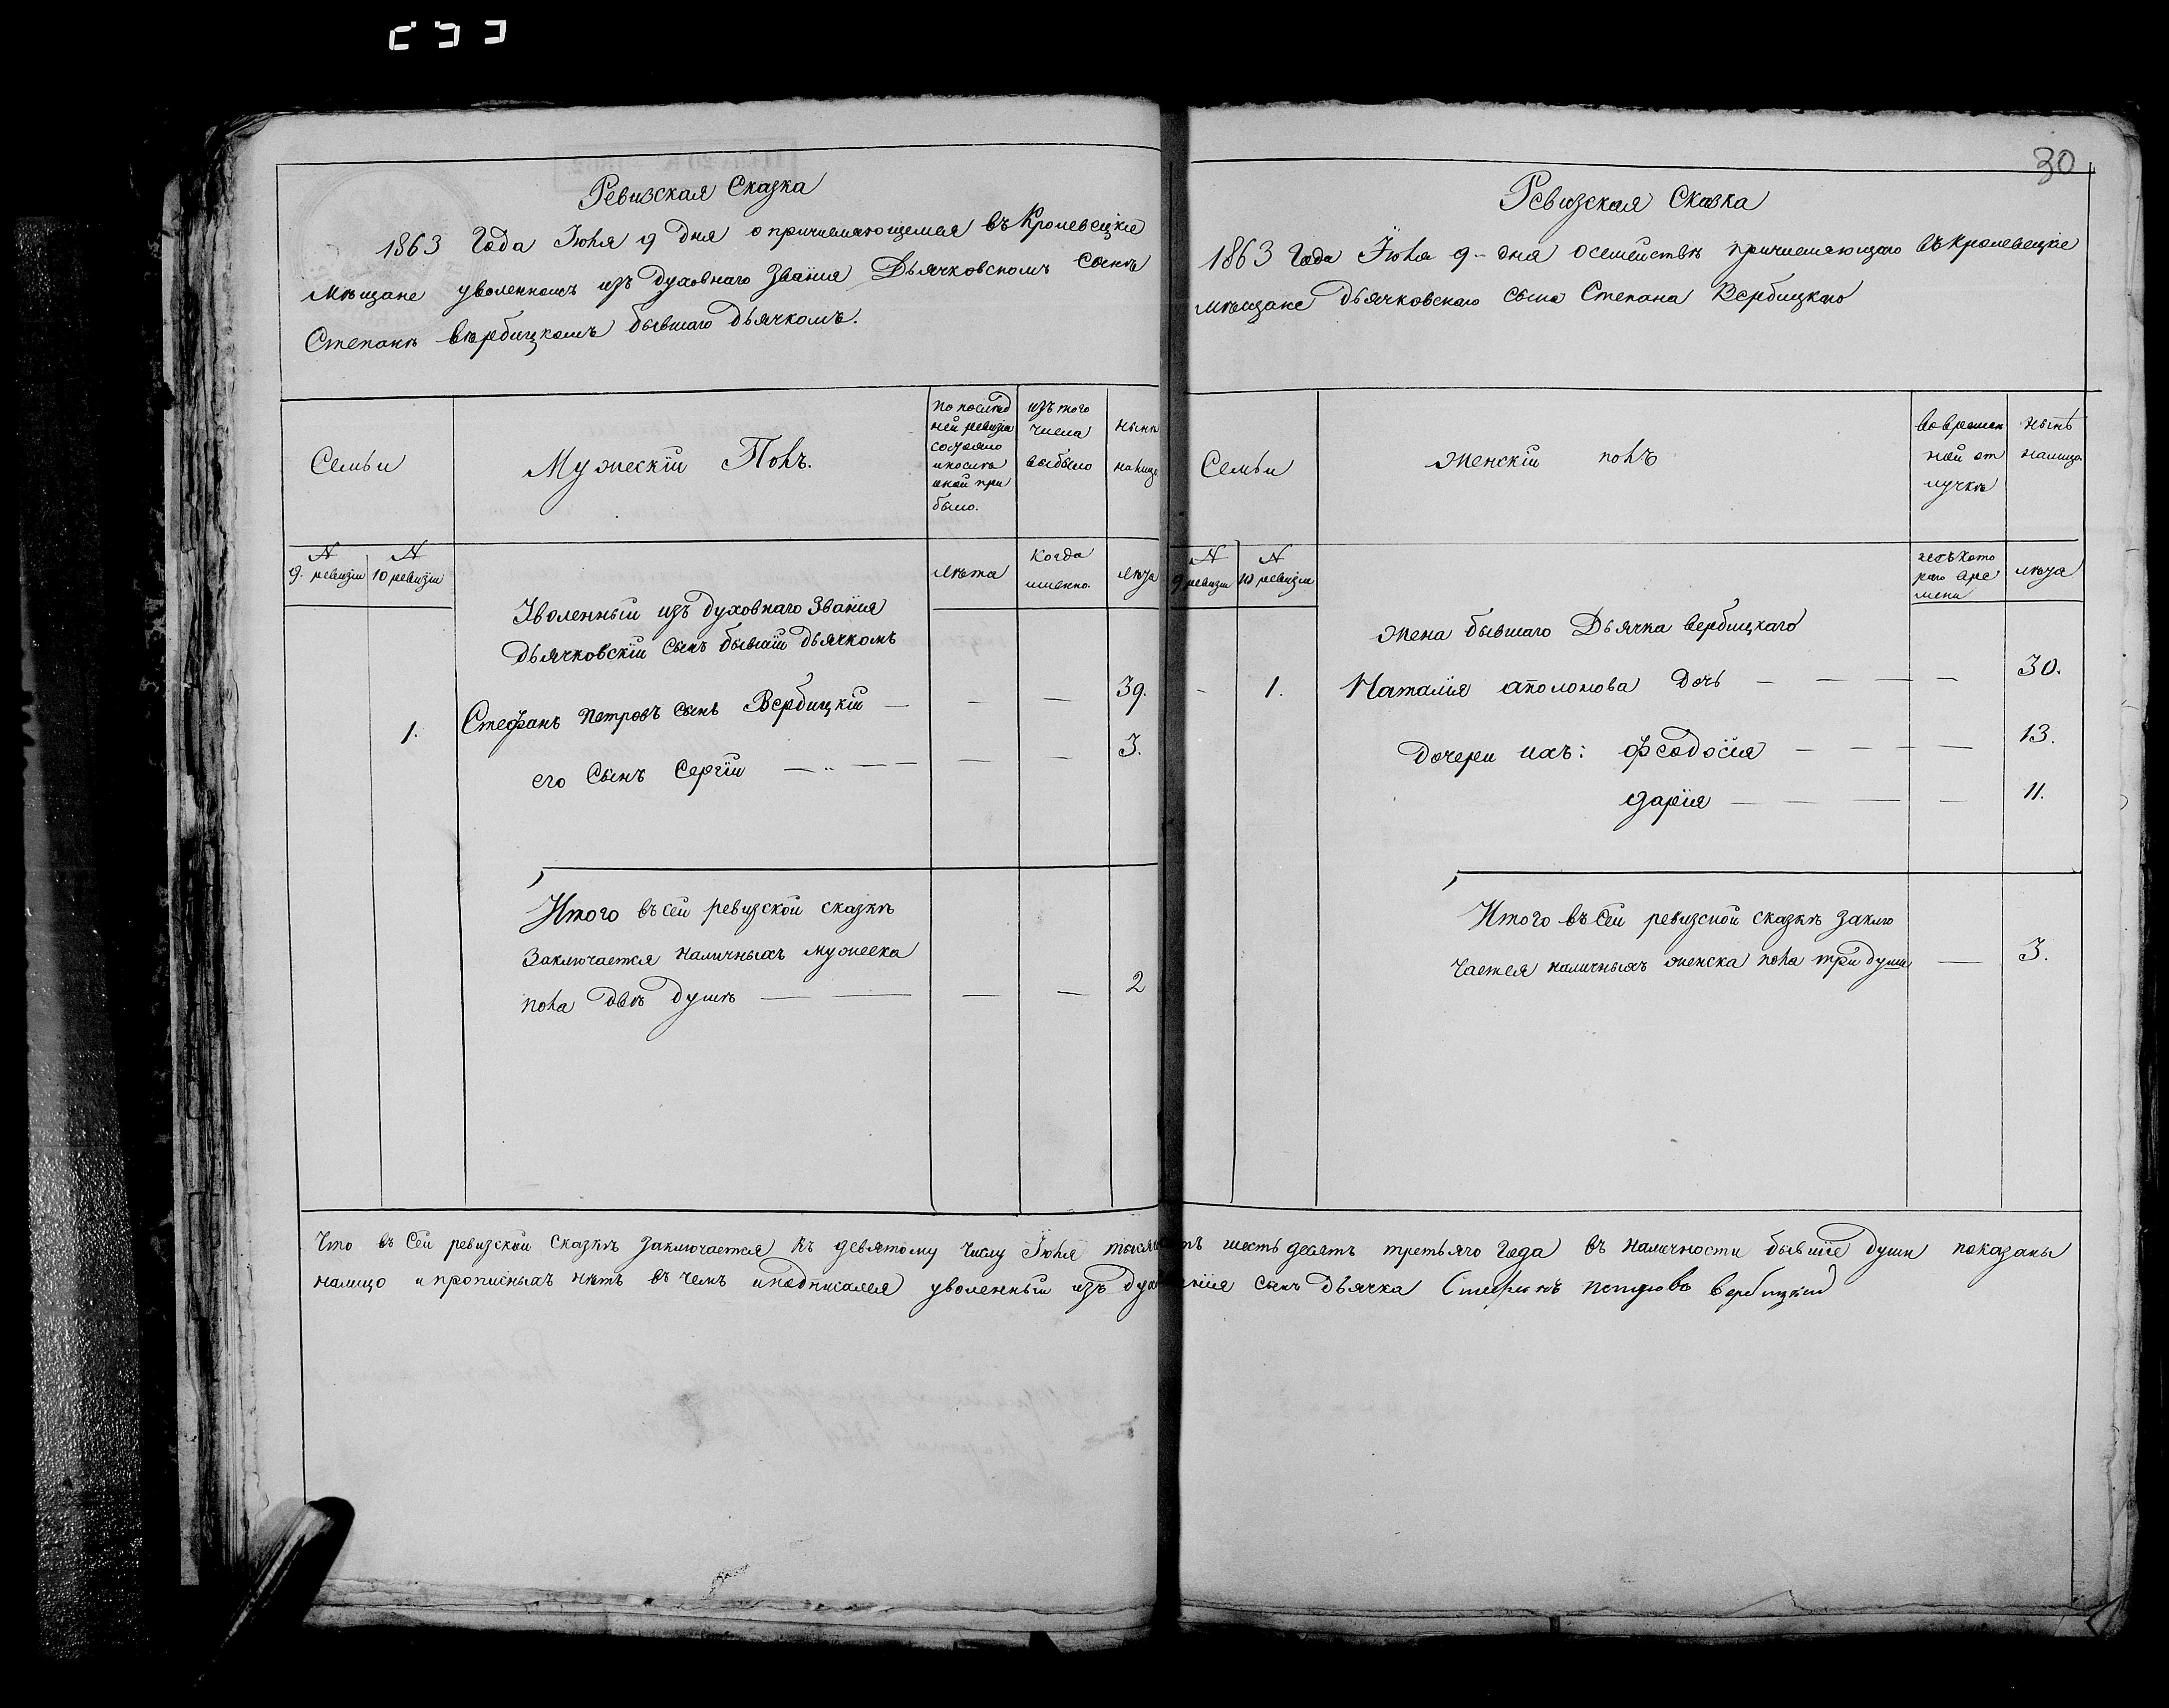 30
Ревизская Сказка
1863 Года Іюля 9 дня о причисляющемся въ Кролевецкіе
Мѣщане уволенномъ изъ духовнаго Званія Дьячковскомъ Сынѣ
Степанѣ Вѣрбицкомъ бывшаго дьячкомъ.
Семьи
Мужескій Полъ.
По послѣд
ней ревизіи
состояло
и послѣ
оной при
было.
изъ того
числа
выбыло
нынѣ
налицо
№
9. ревизіи
№
10 ревизіи
лѣта
когда
именно.
лѣта
Уволенный изъ духовнаго Званія
Дьячковскій сынъ бывшій дьячкомъ
1. Стефанъ Петровъ сынъ Вербицкій — — — 39.
его Сынъ Сергій — — — — — 3.
Итого въ сей ревизской сказкѣ
Заключается наличныхъ мужеска
пола двѣ душѣ — — — — 2
Ревизская Сказка
1863 Года Іюля 9- дня о семействѣ причисляющаго въ Кролевецкіе
мѣщане Дьячковскаго сына Степана Вербицкаго
Семьи
Женскій полъ
Во времен
ной от
лучкѣ
нынѣ
налицо
№
9 ревизіи
№
10 ревизіи
съ кото
раго вре
мени
лѣта
Жена бывшаго Дьячка Вербицкаго
- 1. Наталія Аполонова Дочь — — — — 30.
Дочери ихъ: Феодосія — — — — 13.
Дарія — — — — 11.
Итого въ Сей ревизской сказкѣ заклю
чается наличныхъ женска пола три души — 3.
Что въ Сей ревизской Сказкѣ Заключается къ девятому Числу Іюля шестьдесятъ третьяго Года въ наличности бывшіе души показаны
налицо и прописныхъ нѣтъ въ чемъ и подписался уволенный изъ сынъ Дьячка Стефанъ Петровъ Вербицкій